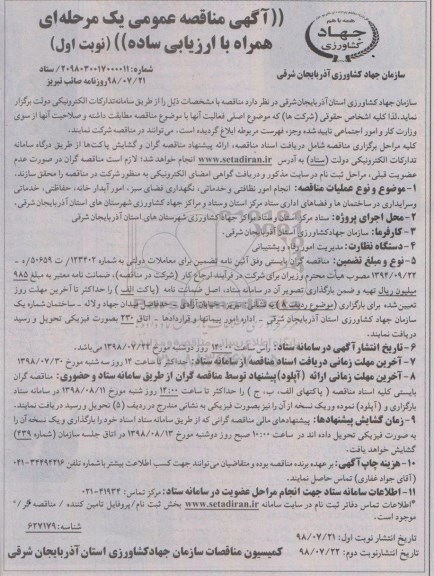 همه با هم
جهاد
کشاورزی
سازمان جهاد کشاورزی آذربایجان شرقی
((آگهی مناقصه عمومی یک مرحله‌ای
همراه با ارزیابی ساده)) (نوبت اول)
شماره: ۲۰۹۸۰۳۰۰۱۷۰۰۰۰۱۱/ ستاد
۹۸/۰۷/۲۱ روزنامه صائب تبریز
سازمان جهاد کشاورزی استان آذربایجان‌شرقی در نظر دارد مناقصه با مشخصات ذیل را از طریق سامانه تدارکات الکترونیکی دولت برگزار
نماید، لذا کلیه اشخاص حقوقی (شرکت ها) که موضوع اصلی فعالیت آنها با موضوع مناقصه مطابقت داشته و صلاحیت آنها از سوی
وزارت کار و امور اجتماعی تایید شده وجزء فهرست مربوطه ابلاغ گردیده است، می‌توانند در مناقصه شرکت نمایند.
کلیه مراحل برگزاری مناقصه شامل دریافت اسناد مناقصه، ارائه پیشنهاد مناقصه گران و گشایش پاکت‌ها از طریق درگاه سامانه
تدارکات الکترونیکی دولت (ستاد) به آدرس www.setadiran.ir انجام خواهد شد؛ لازم است مناقصه گران در صورت عدم
عضویت قبلی، مراحل ثبت نام در سایت مذکور و دریافت گواهی امضای الکترونیکی به منظور شرکت در مناقصه را محقق سازند.
۱-موضوع و نوع عملیات مناقصه: انجام امور نظافتی و خدماتی، نگهداری فضای سبز، امور آبدار خانه، حفاظتی، خدماتی
وسرایداری در ساختمان ها و فضاهای اداری ستاد مرکز استان و ستاد و مراکز جهاد کشاورزی شهرستان های استان آذربایجان شرقی.
۲-محل اجرای پروژه: ستاد مرکز استان و ستاد و مراکز جهاد کشاورزی شهرستان های استان آذربایجان شرقی
۳-کارفرما: سازمان جهاد کشاورزی استان آذربایجان شرقی.
۴-دستگاه نظارت: مدیریت امور رفاه و پشتیبانی
۵-نوع و مبلغ تضمین: مناقصه گران بایستی وفق آئین نامه تضمین برای معاملات دولتی به شماره ۱۲۳۴۰۲/ت ۵۰۶۵۹ ه - ۰
۱۳۹۴/۰۹/۲۲ مصوب هیأت محترم وزیران برای شرکت در فرآیند ارجاع کار (شرکت در مناقصه)، ضمانت نامه معتبر به مبلغ ۹۸۵
میلیون ریال تهیه و ضمن بارگذاری تصویر آن در سامانه ستاد، اصل ضمانت نامه (پاکت الف) را حداکثر تا آخرین مهلت روز
تعیین شده برای بارگزاری (موضوع ردیف ۸) به نشانی: تبریز- جهان آزادی - حدفاصل میدان جهاد ولاله - ساختمان شماره یک
سازمان جهاد کشاورزی استان آذربایجان شرقی - اداره امور پیمانها و قراردادها - اتاق ۲۳۰ بصورت فیزیکی تحویل و رسید
دریافت نمایند.
۶- تاریخ انتشار آگهی در سامانه ستاد: رأس ساعت ۱۴:۰۰ روز دوشنبه مورخ ۱۳۹۸/۰۷/۲۲ می‌باشد.
۷- آخرین مهلت زمانی دریافت اسناد مناقصه از سامانه ستاد: حداکثر تا ساعت ۱۴ روز سه شنبه مورخ ۱۳۹۸/۰۷/۳۰
۸- آخرین مهلت زمانی ارائه (آپلود) پیشنهاد توسط مناقصه گران از طریق سامانه ستاد و حضوری: مناقصه گران
بایستی کلیه اسناد مناقصه (پاکتهای الف، ب، ج) را حداکثر تا ساعت ۱۴:۰۰ روز شنبه مورخ ۱۳۹۸/۰۸/۱۱ در سامانه ستاد
بارگزاری و (آپلود) نموده و ریک نسخه از آن را نیز بصورت فیزیکی به نشانی مندرج در ردیف (۵) تحویل و رسید دریافت نمایند.
۹- زمان گشایش پیشنهادها: پیشنهادهای مالی مناقصه گرانی که از طریق سامانه ستاد اسناد خود را بارگذاری و یک نسخه آن را
به صورت فیزیکی تحویل داده اند در ساعت ۱۰:۰۰ صبح روز دوشنبه مورخ ۱۳۹۸/۰۸/۱۳ در اتاق جلسه سازمان (شماره ۲۳۹)
گشایش خواهد یافت.
۱۰-هزینه چاپ آگهی: بر عهده برنده مناقصه بوده و متقاضیان می‌توانند جهت کسب اطلاعات بیشتر با شماره تلفن ۳۴۴۹۲۳۱۶-۰۴۱
(آقای جواد غفاری) تماس حاصل نمایند.
۱۱- اطلاعات سامانه ستاد جهت انجام مراحل عضویت در سامانه ستاد: مرکز تماس: ۴۱۹۳۴-۰۲۱
"اطلاعات تماس دفاتر ثبت نام در سایت سامانه www.setadiran.ir بخش ثبت نام/پروفایل تامین کننده / مناقصه گر/"
موجود است.
شناسه: ۶۳۷۱۷۹
تاریخ انتشار نوبت اول: ۹۸/۰۷/۲۱
تاریخ انتشار نوبت دوم: ۹۸/۰۷/۲۲
کمیسیون مناقصات سازمان جهاد کشاورزی استان آذربایجان شرقی